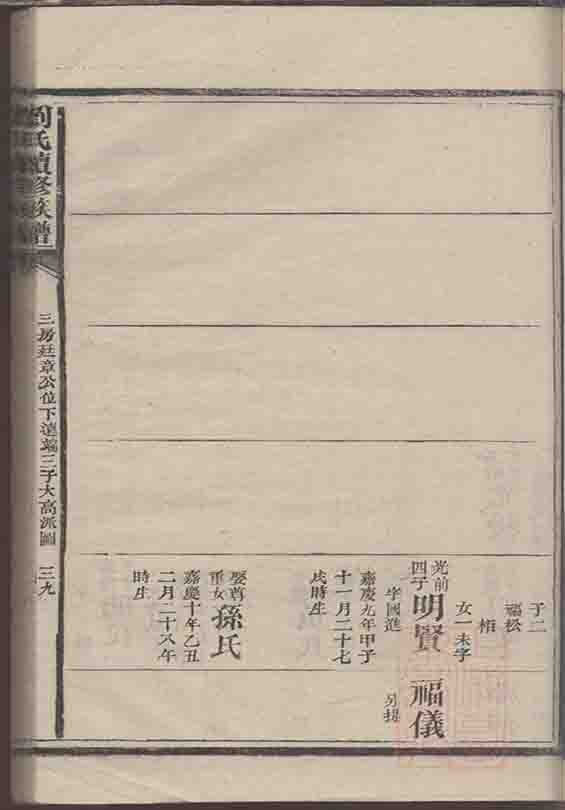 子二
福松
栢
女一未字
光前
四子
明賢
字國進
嘉慶九年甲子
十一月二十七
戌時生
娶尊
重女
孫氏
嘉慶十年乙丑
二月二十八午
時生
福儀
另提
劉氏續修族譜
三房廷章公位下達端三子大高派圖
三九